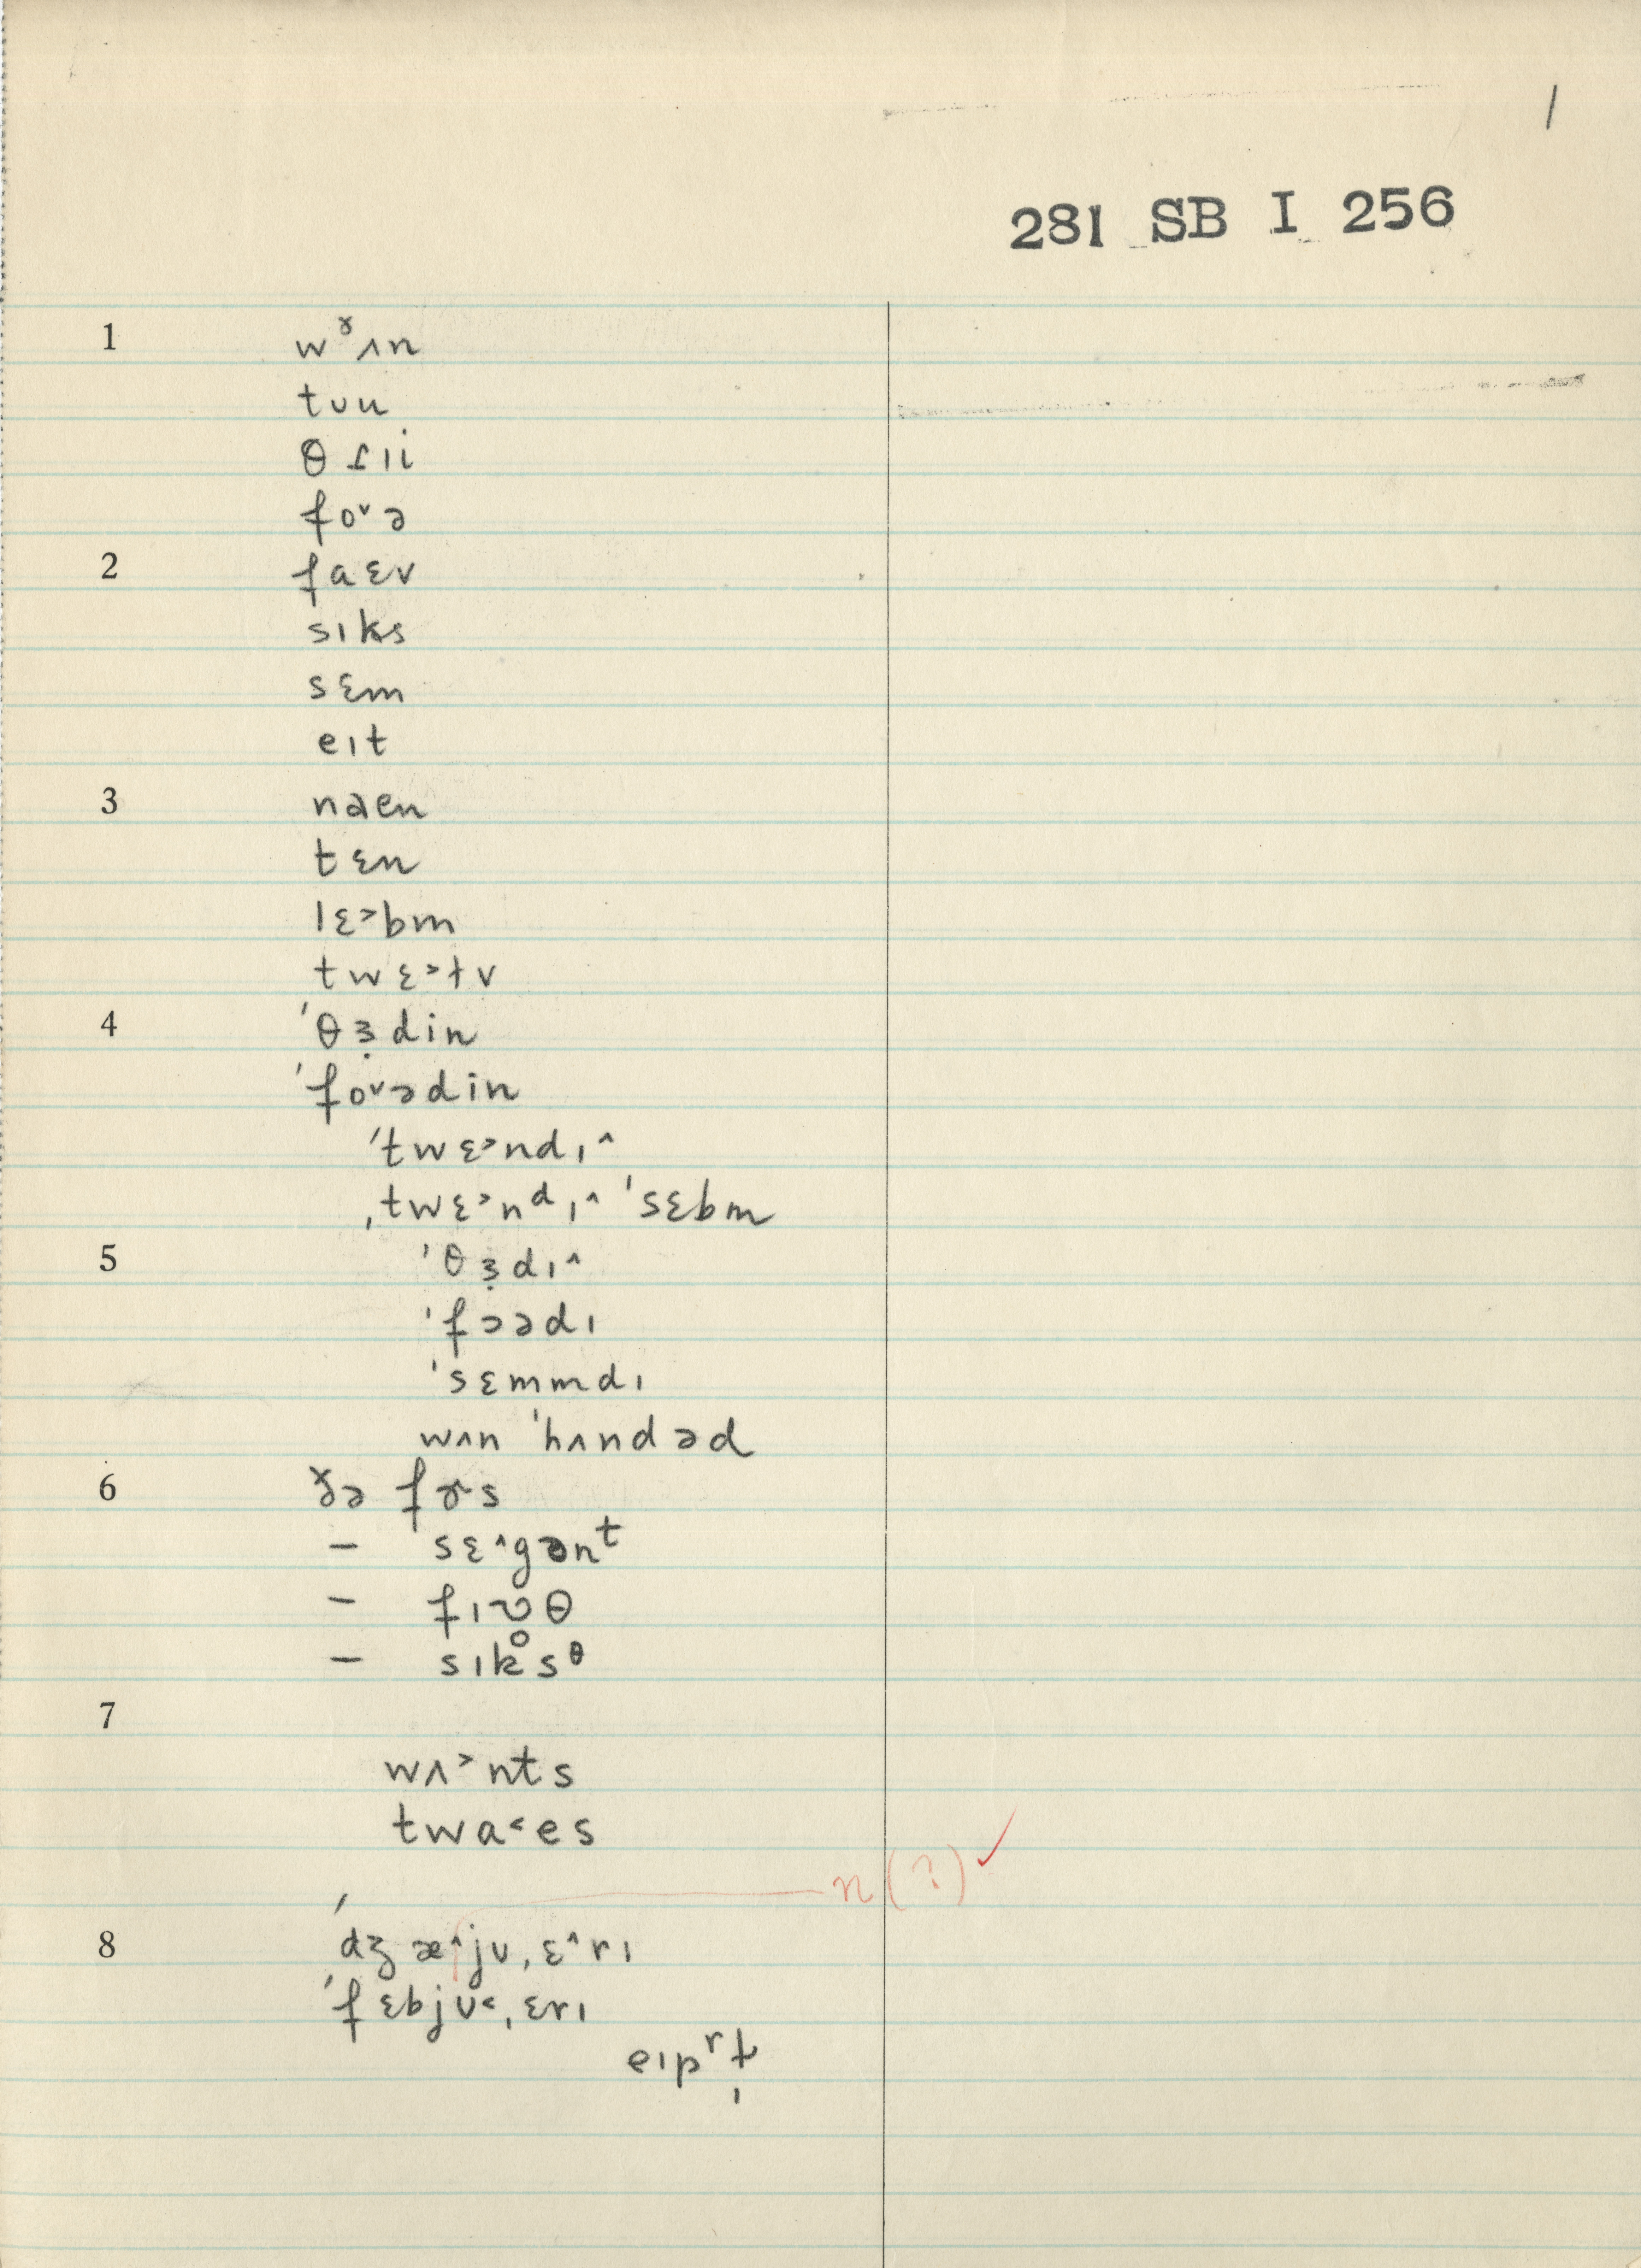 1
281 SB I 256
1 wˠʌn
tʊu
θɹɪi
fo˅ə
2 faɛv
sɪks
sɛm
eɪt
3 naen
tɛn
lɛ˃bm
twɛ˃tv
4 ˈθɜ̣din
ˈfo˅ədin
ˈtwɛ˃ndɪ˄
ˌtwɛ˃nᵈɪ˄ ˈsɛbm
5 ˈθɜ̣dɪ˄
ˈfɔədɪ
ˈsɛmmdɪ
wʌn ˈhʌndəd
6 ðə fɚs
– sɛ˄gənᵗ
– fɪʊθ
– sɪk̊sᶿ
7
wʌ˃nts
twa˂es
n(?) ✓
8 ˈdʒæ˄jʊˌɛ˄rɪ
ˈfɛbjʊ˂ˌɛrɪ